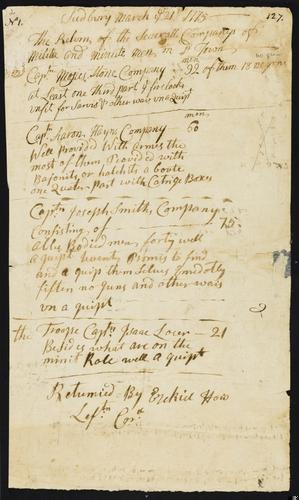 No 1.
127.
Sudbury March ye 21st 1775
The Return of the Severall Companys of
Militia and minit men in sd Town
Captn Moses Stone Company men 92 of them 18 no guns
at Least one third part ye firelocks
unfit for Sarvis & other wais un a quipt
Captn Aaron Hayns Company men, 60
Well Provided With Arms the
most of them Provided with
Bayonits or hatchits a boute
one Quater Part with Catrige Boxes
Captn Joseph Smiths Company
Consisting of 75
Able Bodied men, forty well
a quipt twenty Promis to find
and a quip them Selves Imedotly
fiften no guns and other wais
un a quipt
the Troope Captn Isaac Locer — 21
Besides what are on the
minit Role well a quipt
Returned By Ezekiel How
Leftn Cornl